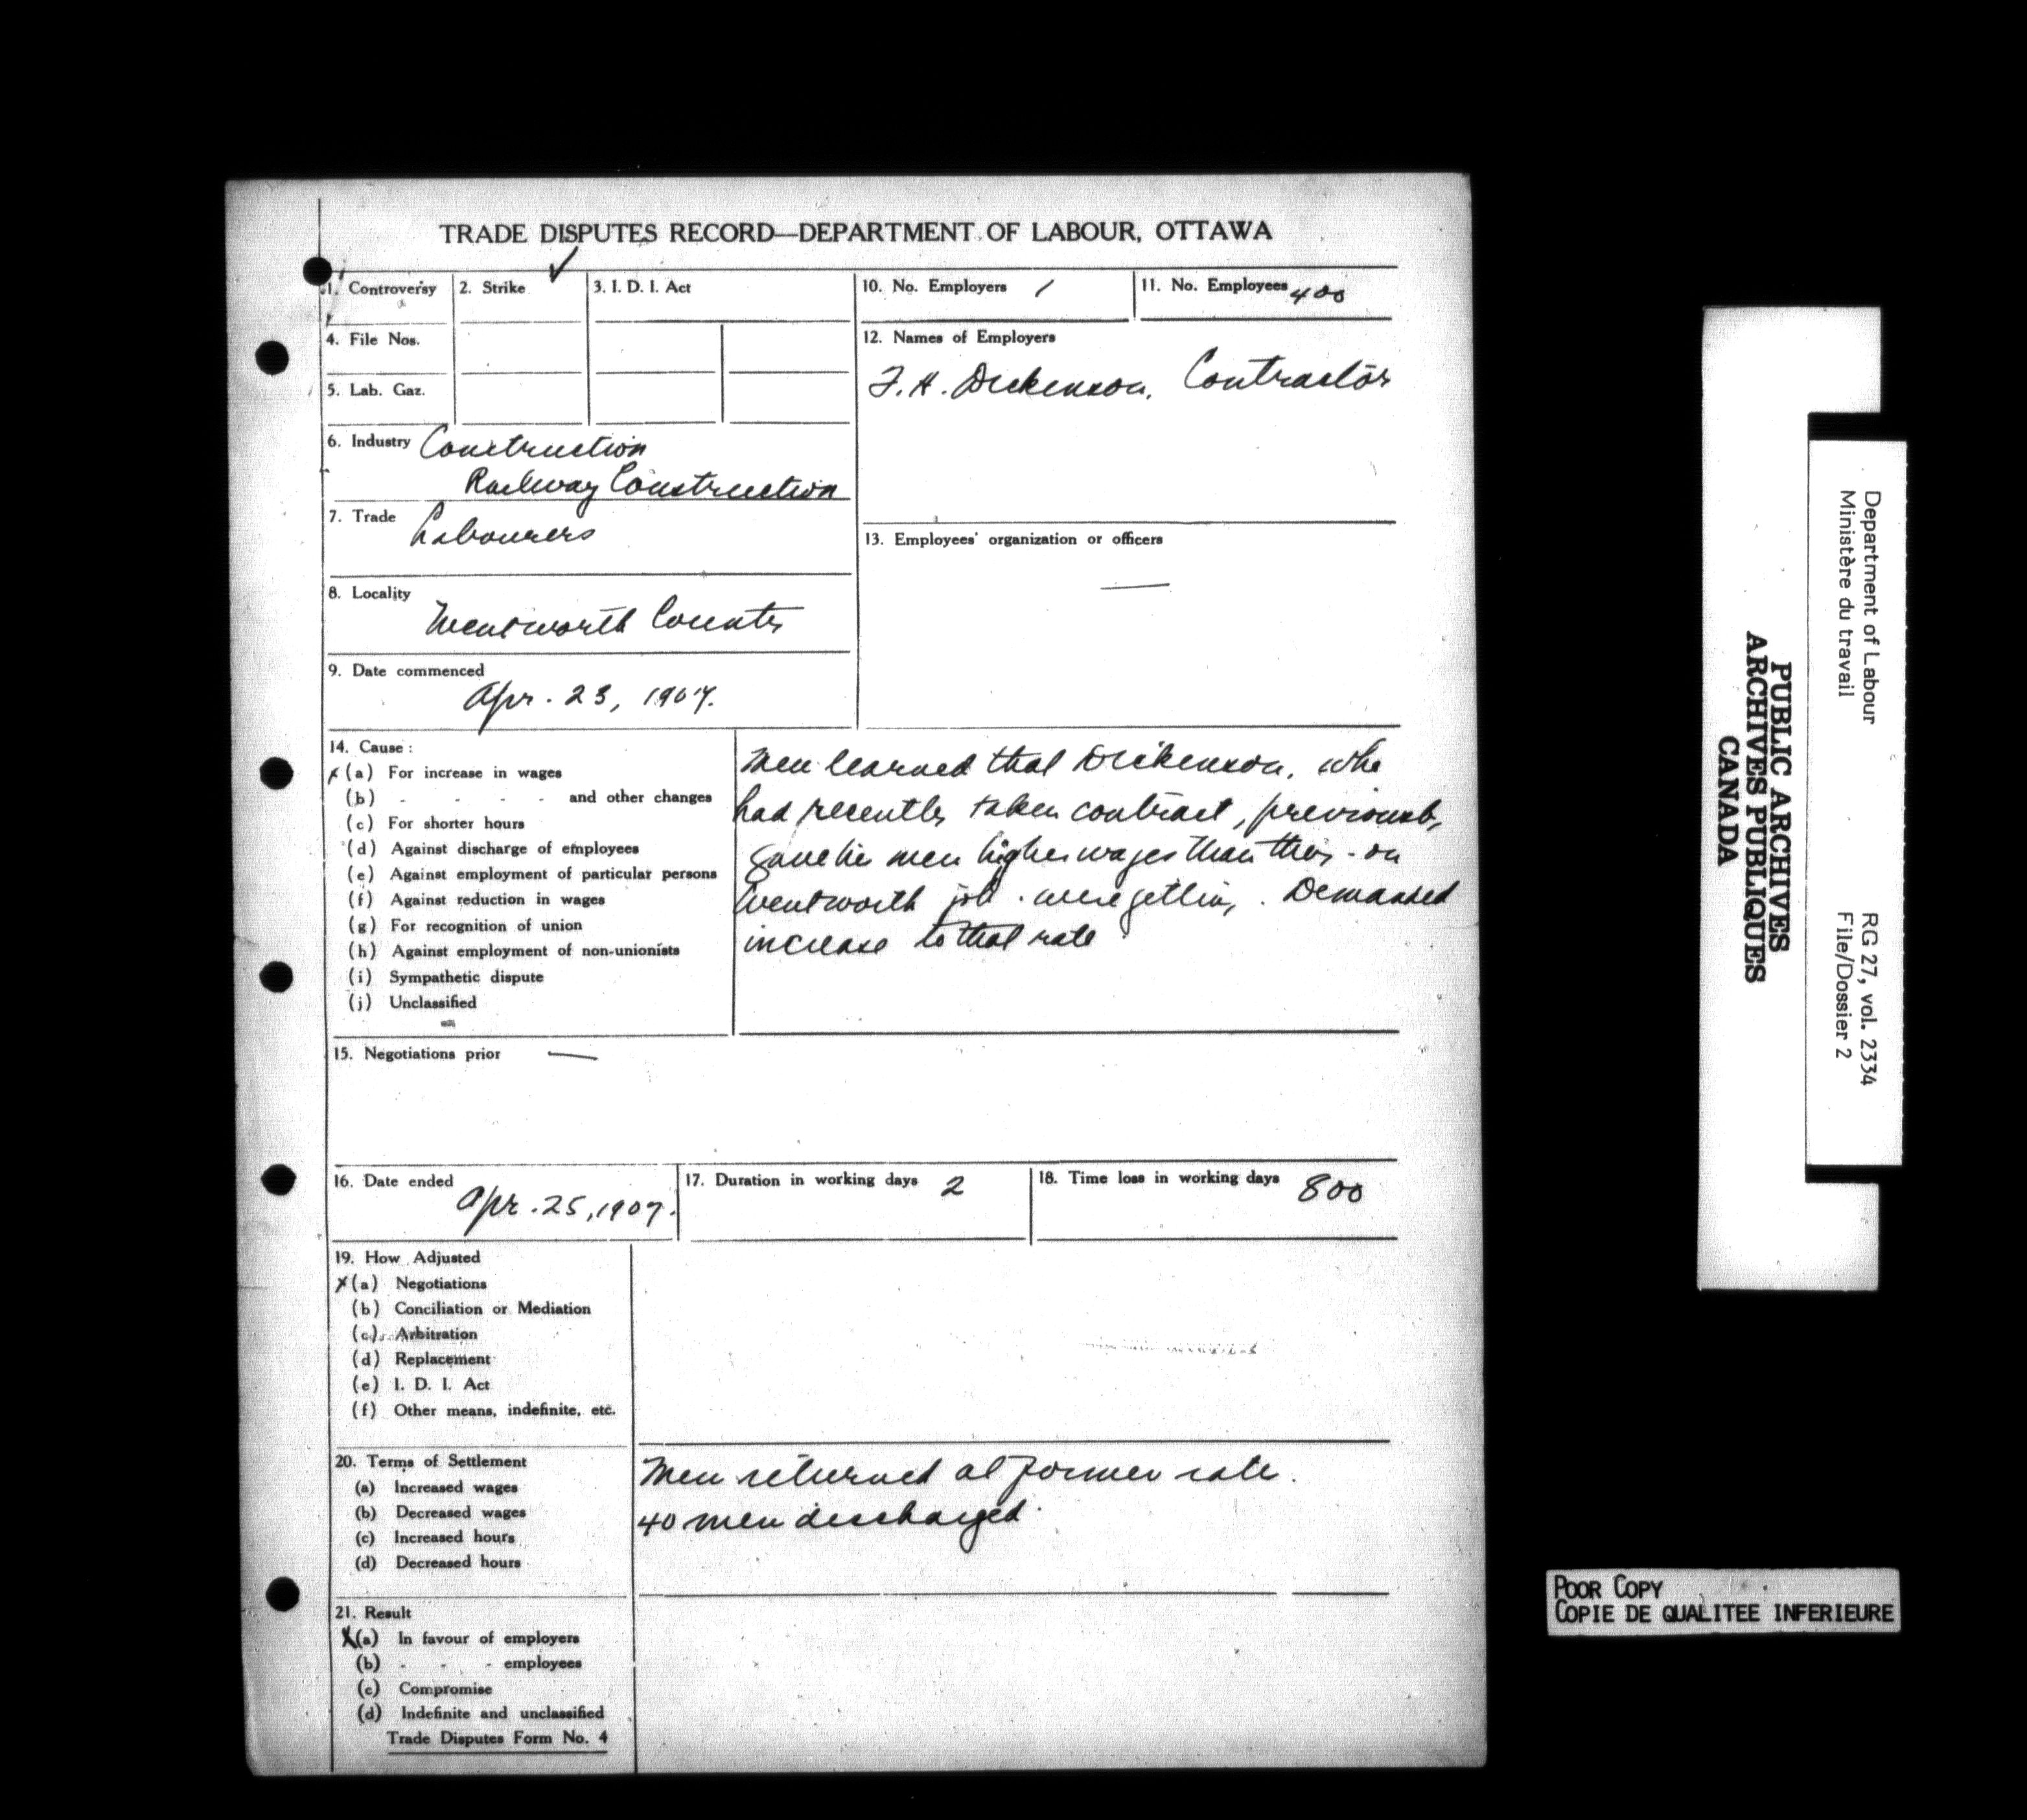 TRADE DISPUTES RECORD—DEPARTMENT OF LABOUR, OTTAWA
✓
1. Controversy
2. Strike
3. I. D. I. Act
4. File Nos.
5. Lab. Gaz.
6. Industry Construction
Railway Construction
7. Trade Labourers
8. Locality
Wentworth County
9. Date commenced
Apr. 23, 1907.
10. No. Employers 1
11. No. Employees 400
12. Names of Employers
F. H. Dickenson, Contractor
13. Employees' organization or officers
—
14. Cause :
x (a) For increase in wages
(b) - - - - and other changes
(c) For shorter hours
(d) Against discharge of employees
(e) Against employment of particular persons
(f) Against reduction in wages
(g) For recognition of union
(h) Against employment of non-unionists
(i) Sympathetic dispute
(j) Unclassified
Men learned that Dickenson, who
had recently taken contract, previously,
gave his men higher wages than they - on
Wentworth job - were getting. Demanded
increase to that rate.
15. Negotiations prior —
16. Date ended
Apr. 25, 1907.
17. Duration in working days 2
18. Time loss in working days 800
19. How Adjusted
x (a) Negotiations
(b) Conciliation or Mediation
(c) Arbitration
(d) Replacement
(e) I. D. I. Act
(f) Other means, indefinite, etc.
20. Terms of Settlement
(a) Increased wages
(b) Decreased wages
(c) Increased hours
(d) Decreased hours
Men returned at former rate.
40 men discharged.
21. Result
x (a) In favour of employers
(b) - - - employees
(c) Compromise
(d) Indefinite and unclassified
Trade Disputes Form No. 4
PUBLIC ARCHIVES
ARCHIVES PUBLIQUES
CANADA
Department of Labour
Ministère du travail
RG 27, vol. 2334
File/Dossier 2
POOR COPY
COPIE DE QUALITEE INFERIEURE